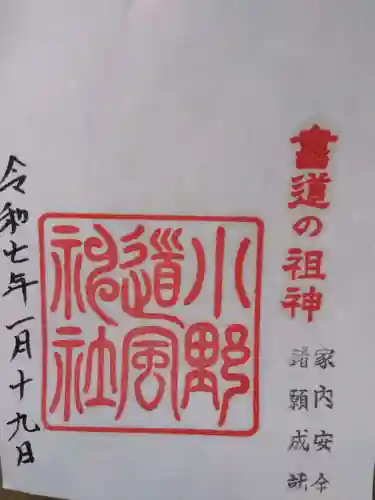 書道の祖神
家内安全
諸願成就
小野
道風
神社
令和七年一月十九日